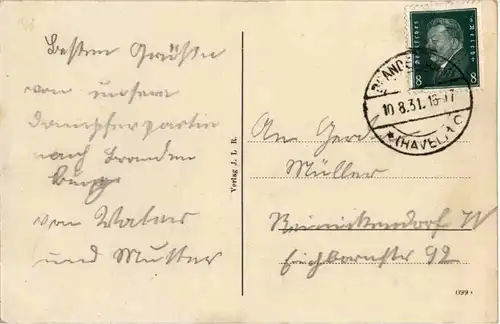 Besten Grüße
von unserer
Dampferpartie
nach Branden
burg
von Vater
und Mutter
Verlag J. L. R.
DEUTSCHES REICH
8 8
BRAND
10.8.31.16-17
* (HAVEL) 1 C
An Gerda
Müller
Reinickendorf W
Eichbornstr 92
099